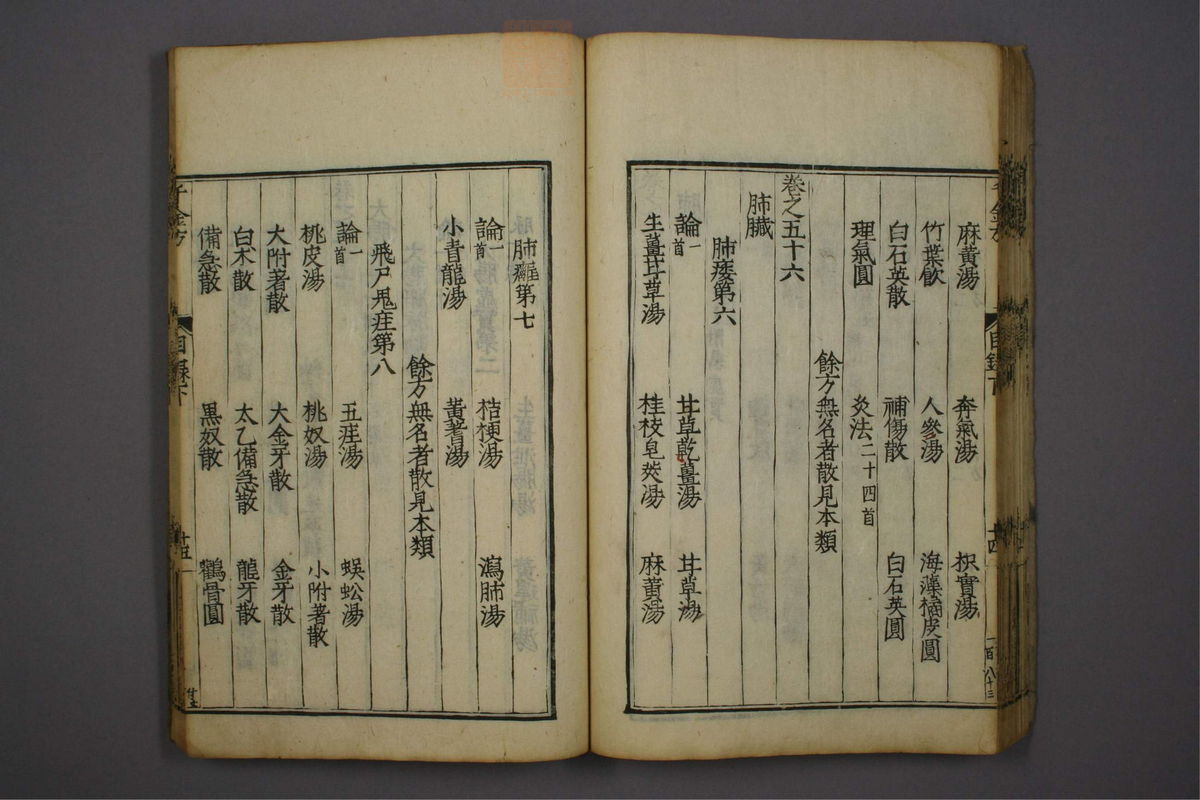 麻黃湯 奔氣湯 枳實湯
竹葉飲 人參湯 海藻橘皮圓
白石英散 補傷散 白石英圓
理氣圓 灸法二十四首
餘方無名者散見本類
卷之五十六
肺臟
肺痿第六
論一首 甘草乾薑湯 甘草湯
生薑甘草湯 桂枝皂莢湯 麻黃湯
肺癰第七
論一首 桔梗湯 瀉肺湯
小青龍湯 黃耆湯
餘方無名者散見本類
飛尸鬼疰第八
論一首 五疰湯 蜈蚣湯
桃皮湯 桃奴湯 小附著散
大附著散 大金牙散 金牙散
白朮散 太乙備急散 龍牙散
備急散 黑奴散 鸛骨圓
千金方 目錄下 十五